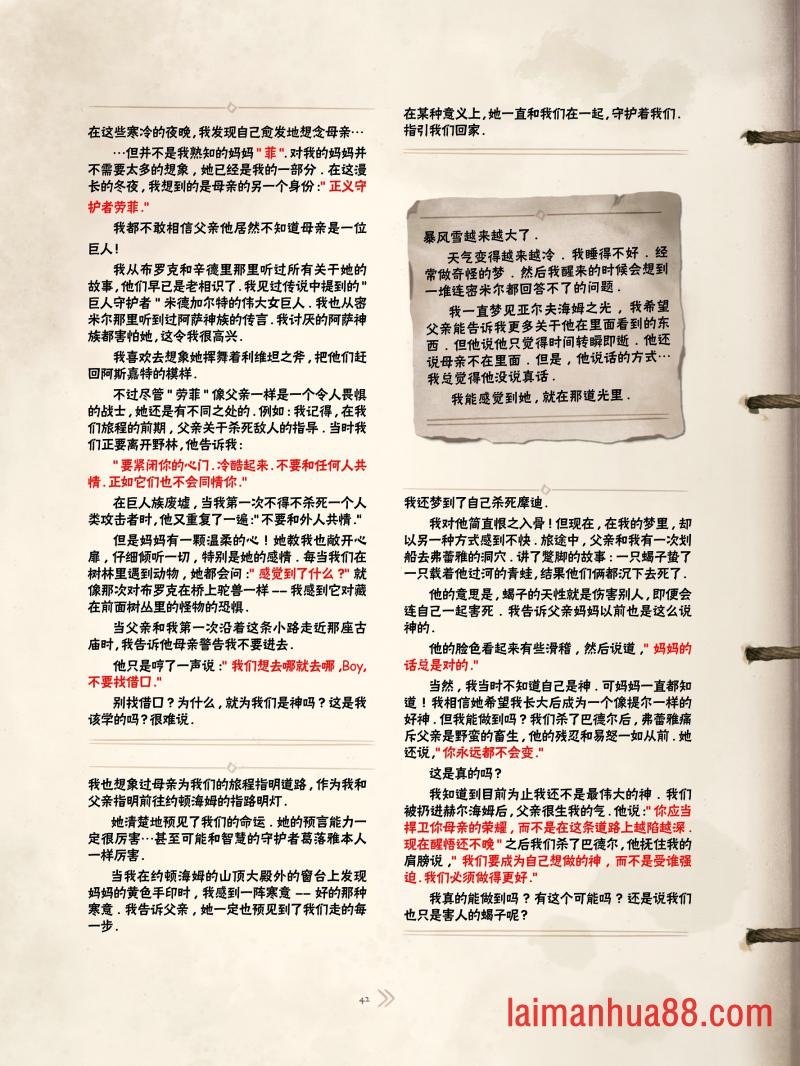 在这些寒冷的夜晚,我发现自己愈发地想念母亲…
…但并不是我熟知的妈妈"菲".对我的妈妈并
不需要太多的想象,她已经是我的一部分.在这漫
长的冬夜,我想到的是母亲的另一个身份:"正义守
护者劳菲."
我都不敢相信父亲他居然不知道母亲是一位
巨人!
我从布罗克和辛德里那里听过所有关于她的
故事,他们早已是老相识了.我见过传说中提到的"
巨人守护者"米德加尔特的伟大女巨人.我也从密
米尔那里听到过阿萨神族的传言.我讨厌的阿萨神
族都害怕她,这令我很高兴.
我喜欢去想象她挥舞着利维坦之斧,把他们赶
回阿斯嘉特的模样.
不过尽管"劳菲"像父亲一样是一个令人畏惧
的战士,她还是有不同之处的.例如:我记得,在我
们旅程的前期,父亲关于杀死敌人的指导.当时我
们正要离开野林,他告诉我:
"要紧闭你的心门.冷酷起来.不要和任何人共
情.正如它们也不会同情你."
在巨人族废墟,当我第一次不得不杀死一个人
类攻击者时,他又重复了一遍:"不要和外人共情."
但是妈妈有一颗温柔的心!她教我也敞开心
扉,仔细倾听一切,特别是她的感情.每当我们在
树林里遇到动物,她都会问:"感觉到了什么?"就
像那次对布罗克在桥上驼兽一样——我感到它对藏
在前面树丛里的怪物的恐惧.
当父亲和我第一次沿着这条小路走近那座古
庙时,我告诉他母亲警告我不要进去.
他只是哼了一声说:"我们想去哪就去哪,Boy,
不要找借口."
别找借口?为什么,就为我们是神吗?这是我
该学的吗?很难说.
我也想象过母亲为我们的旅程指明道路,作为我和
父亲指明前往约顿海姆的指路明灯.
她清楚地预见了我们的命运.她的预言能力一
定很厉害…甚至可能和智慧的守护者葛落雅本人
一样厉害.
当我在约顿海姆的山顶大殿外的窗台上发现
妈妈的黄色手印时,我感到一阵寒意——好的那种
寒意.我告诉父亲,她一定也预见到了我们走的每
一步.
在某种意义上,她一直和我们在一起,守护着我们.
指引我们回家.
暴风雪越来越大了.
天气变得越来越冷.我睡得不好.经
常做奇怪的梦.然后我醒来的时候会想到
一堆连密米尔都回答不了的问题.
我一直梦见亚尔夫海姆之光,我希望
父亲能告诉我更多关于他在里面看到的东
西.但他说他只觉得时间转瞬即逝.他还
说母亲不在里面.但是,他说话的方式…
我总觉得他没说真话.
我能感觉到她,就在那道光里.
我还梦到了自己杀死摩迪.
我对他简直恨之入骨!但现在,在我的梦里,却
以另一种方式感到不快.旅途中,父亲和我有一次划
船去弗蕾雅的洞穴.讲了蹩脚的故事:一只蝎子蛰了
一只载着他过河的青蛙,结果他们俩都沉下去死了.
他的意思是,蝎子的天性就是伤害别人,即便会
连自己一起害死.我告诉父亲妈妈以前也是这么说
神的.
他的脸色看起来有些滑稽,然后说道,"妈妈的
话总是对的."
当然,我当时不知道自己是神.可妈妈一直都知
道!我相信她希望我长大后成为一个像提尔一样的
好神.但我能做到吗?我们杀了巴德尔后,弗蕾雅痛
斥父亲是野蛮的畜生,他的残忍和易怒一如从前.她
还说,"你永远都不会变."
这是真的吗?
我知道到目前为止我还不是最伟大的神.我们
被扔进赫尔海姆后,父亲很生我的气.他说:"你应当
捍卫你母亲的荣耀,而不是在这条道路上越陷越深.
现在醒悟还不晚"之后我们杀了巴德尔,他抚住我的
肩膀说,"我们要成为自己想做的神,而不是受谁强
迫.我们必须做得更好."
我真的能做到吗?有这个可能吗?还是说我们
也只是害人的蝎子呢?
42
laimanhua88.com